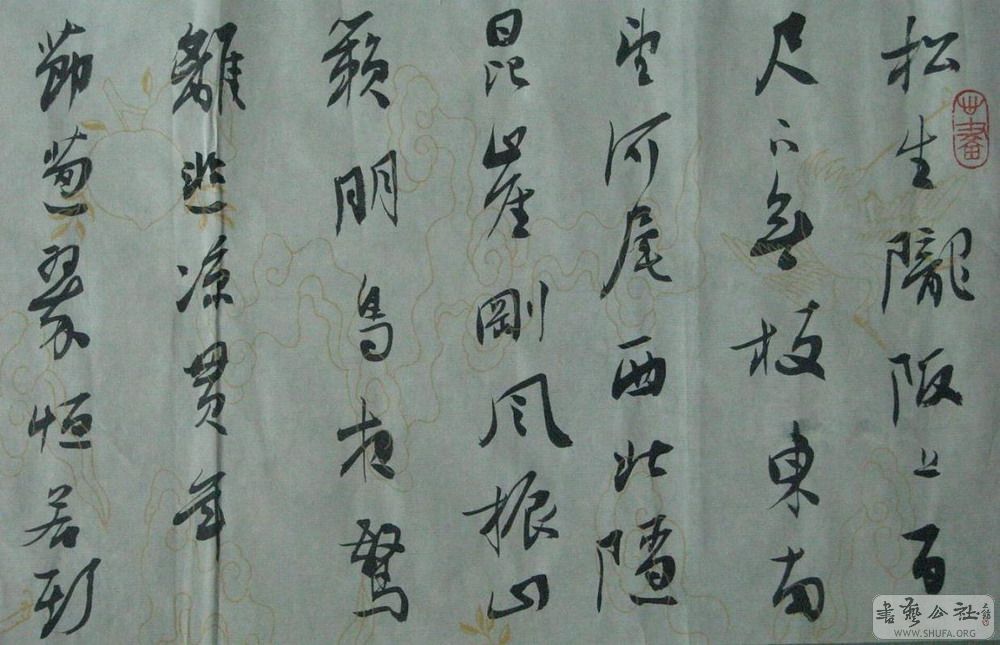 松生隴阪上百
尺下無枝東南
望河尾西北隱
昆崖剛風振山
籟朋鳥夜驚
離悲涼貫年
節葱翠恒若斯
書藝公社
WWW.SHUFA.ORG